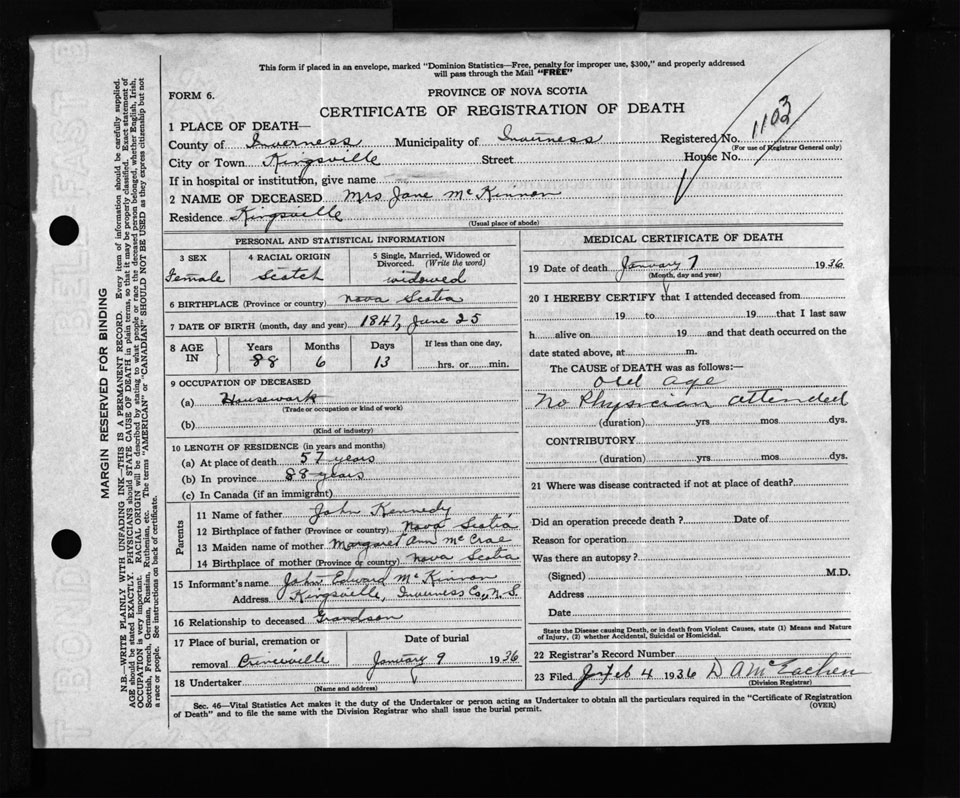 This form if placed in an envelope, marked "Dominion Statistics—Free, penalty for improper use, $300," and properly addressed
will pass through the Mail "FREE"
FORM 6.
PROVINCE OF NOVA SCOTIA
CERTIFICATE OF REGISTRATION OF DEATH
1 PLACE OF DEATH—
Registered No. 1103
(For use of Registrar General only)
County of Inverness Municipality of Inverness
City or Town Kingsville Street House No.
If in hospital or institution, give name
2 NAME OF DECEASED Mrs Jane McKinnon
Residence Kingsville
(Usual place of abode)
PERSONAL AND STATISTICAL INFORMATION
3 SEX 4 RACIAL ORIGIN 5 Single, Married, Widowed or
Divorced. (Write the word)
Female Scotch widowed
6 BIRTHPLACE (Province or country) Nova Scotia
7 DATE OF BIRTH (month, day and year) 1847, June 25
8 AGE IN Years Months Days If less than one day,
88 6 13 hrs. or min.
9 OCCUPATION OF DECEASED
(a) Housework
(Trade or occupation or kind of work)
(b)
(Kind of industry)
10 LENGTH OF RESIDENCE (in years and months)
(a) At place of death 57 years
(b) In province 88 years
(c) In Canada (if an immigrant)
Parents
11 Name of father John Kennedy
12 Birthplace of father (Province or country) Nova Scotia
13 Maiden name of mother Margaret Ann McCrae
14 Birthplace of mother (Province or country) Nova Scotia
15 Informant's name John Edward McKinnon
Address Kingsville, Inverness Co, N.S.
16 Relationship to deceased Grandson
17 Place of burial, cremation or Date of burial
removal Princeville January 9 1936
18 Undertaker
(Name and address)
MEDICAL CERTIFICATE OF DEATH
19 Date of death January 7 1936
(Month, day and year)
20 I HEREBY CERTIFY that I attended deceased from
19 to 19 that I last saw
h alive on 19 and that death occurred on the
date stated above, at m.
The CAUSE OF DEATH was as follows:—
Old age
No Physician attended
(duration) yrs mos dys.
CONTRIBUTORY
(duration) yrs mos dys.
21 Where was disease contracted if not at place of death?
Did an operation precede death? Date of
Reason for operation
Was there an autopsy?
(Signed) M.D.
Address
Date
State the Disease causing Death, or in death from Violent Causes, state (1) Means and Nature
of Injury, (2) whether Accidental, Suicidal or Homicidal.
22 Registrar's Record Number
23 Filed Feb 4 1936 D A McEachen
(Division Registrar)
Sec. 46—Vital Statistics Act makes it the duty of the Undertaker or person acting as Undertaker to obtain all the particulars required in the "Certificate of Registration
of Death" and to file the same with the Division Registrar who shall issue the burial permit.
(OVER)
MARGIN RESERVED FOR BINDING
N.B.—WRITE PLAINLY WITH UNFADING INK—THIS IS A PERMANENT RECORD. Every item of information should be carefully supplied.
AGE should be stated EXACTLY. PHYSICIANS should STATE CAUSE OF DEATH in plain terms, so that it may be properly classified. Exact statement of
OCCUPATION is very important. RACIAL ORIGIN will be described by stating to what people or race the deceased person belonged, whether English, Irish,
Scottish, French, German, Russian, Ruthenian, etc. The terms "AMERICAN" or "CANADIAN" SHOULD NOT BE USED as they express citizenship but not
a race or people. See instructions on back of certificate.